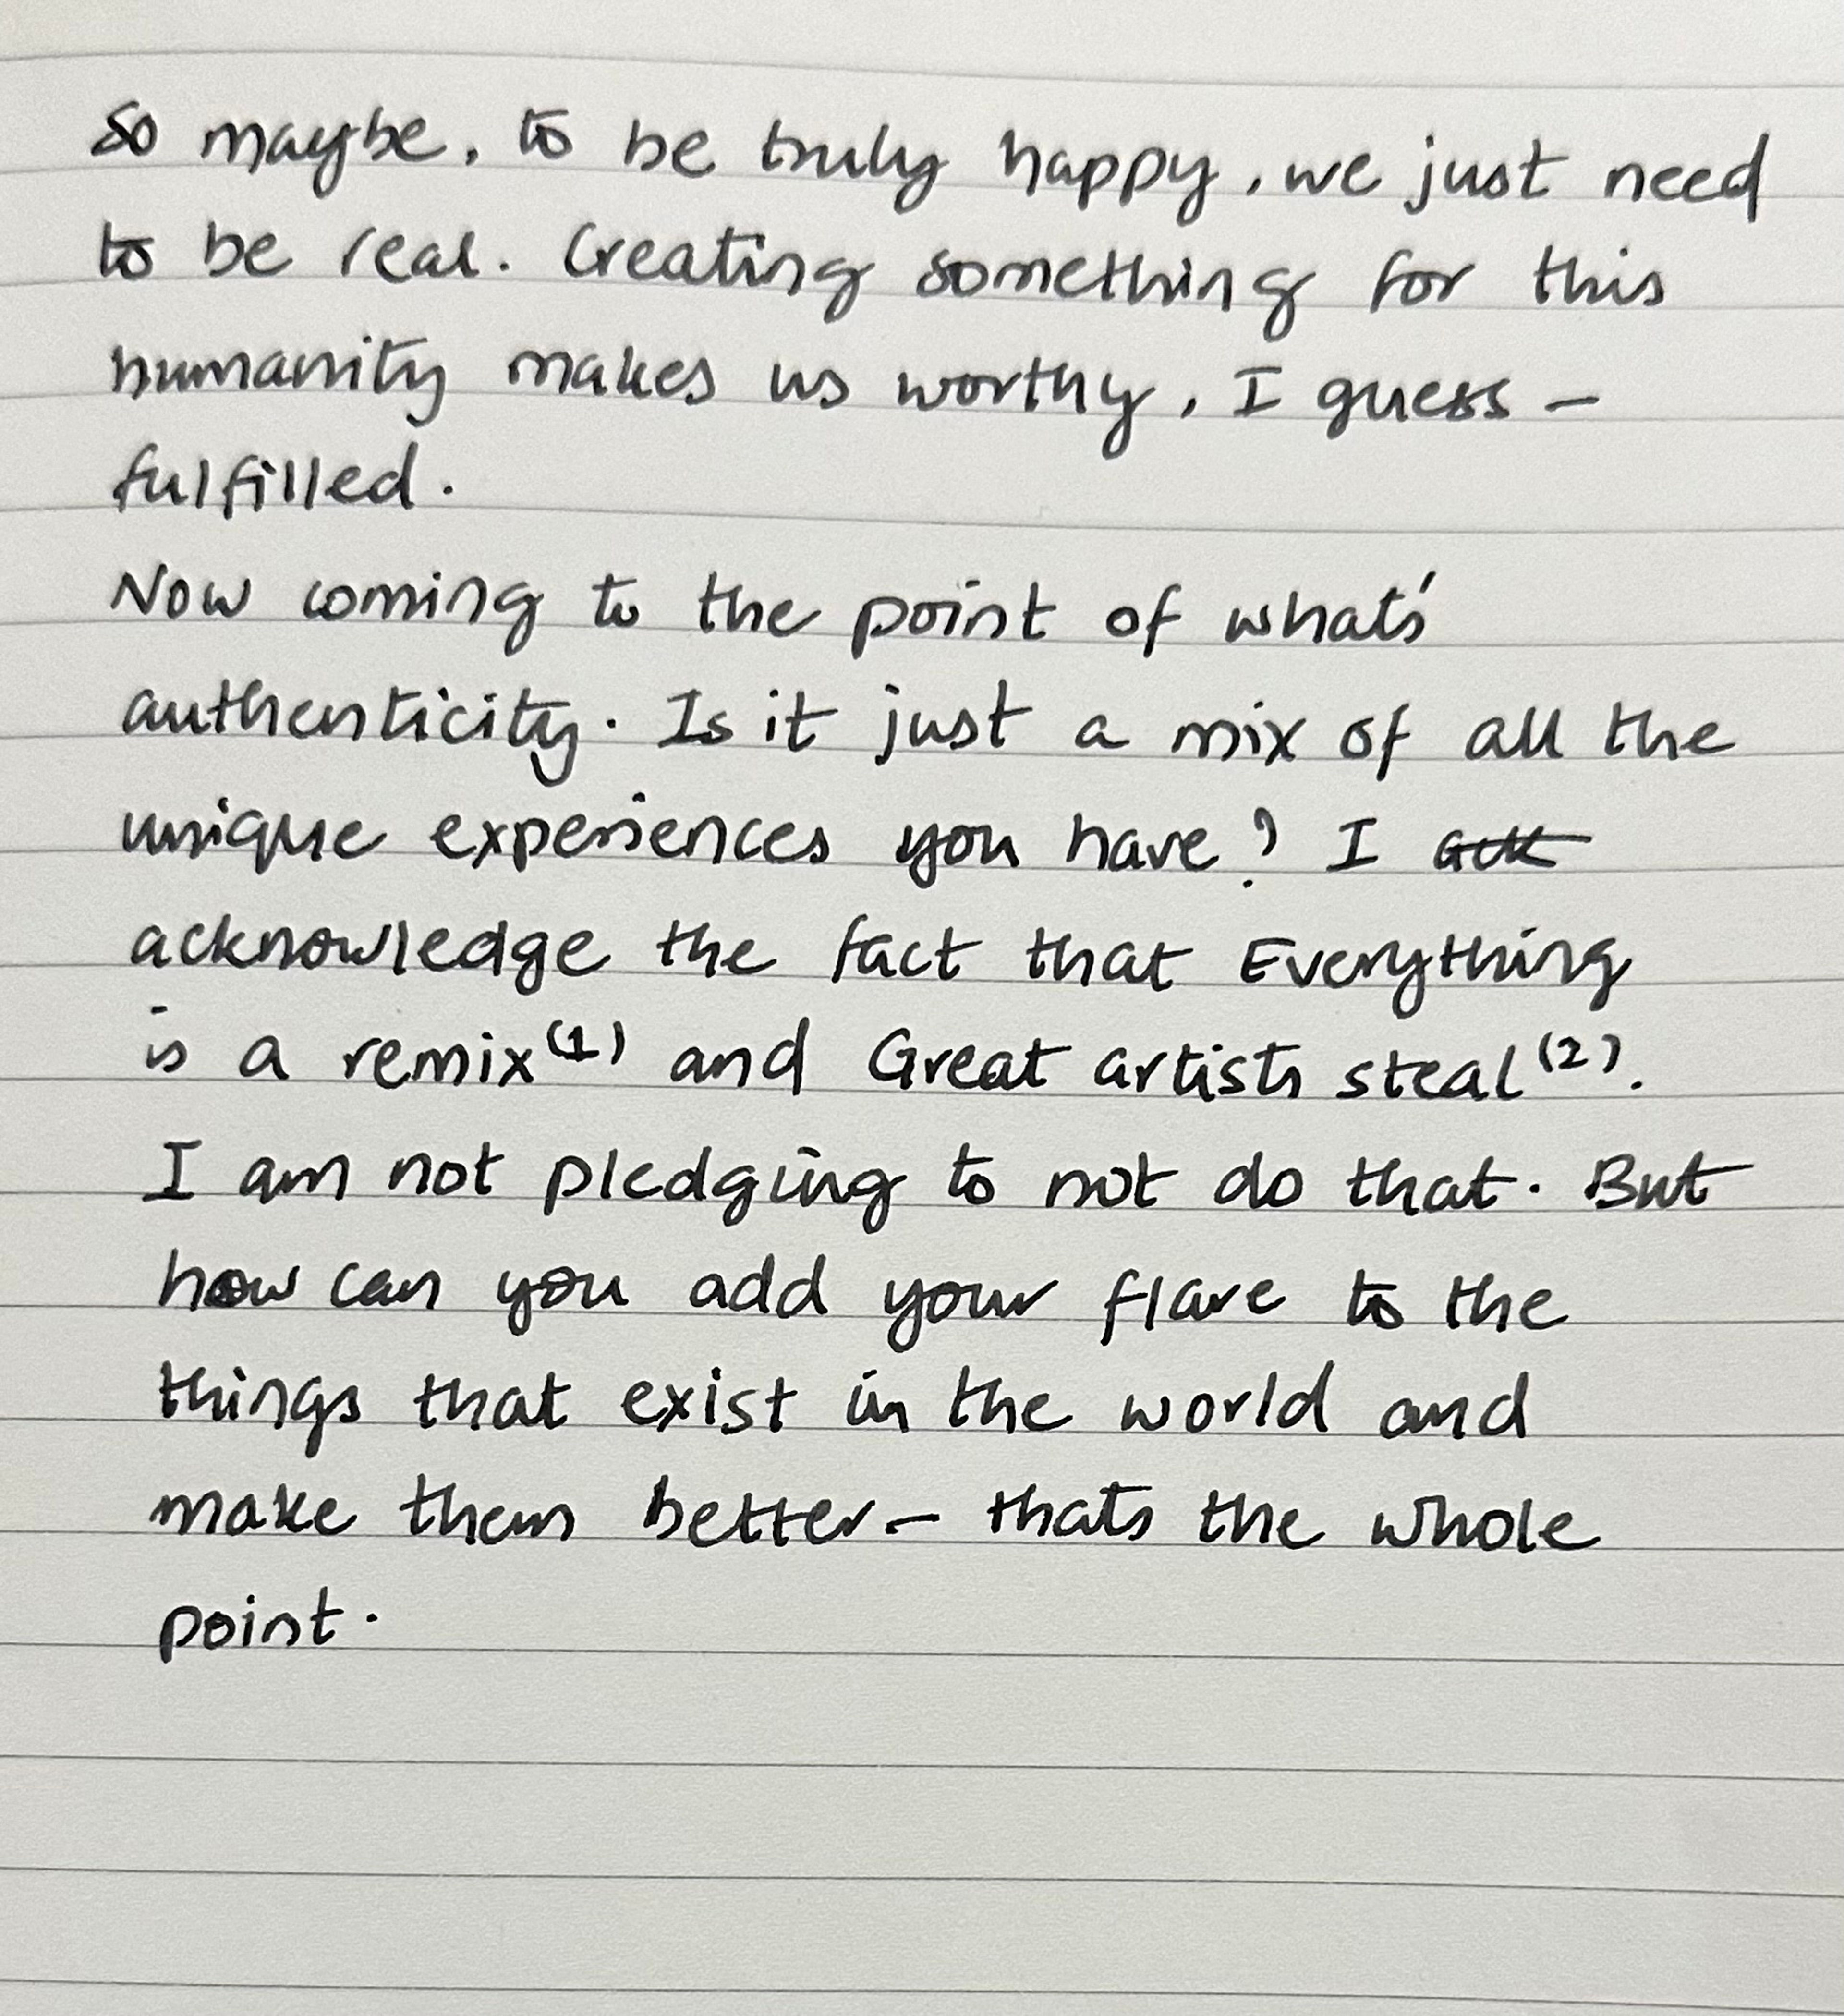 So maybe, to be truly happy, we just need
to be real. Creating something for this
humanity makes us worthy, I guess –
fulfilled.
Now coming to the point of what's
authenticity. Is it just a mix of all the
unique experiences you have? I
acknowledge the fact that Everything
is a remix(1) and Great artists steal(2).
I am not pledging to not do that. But
how can you add your flare to the
things that exist in the world and
make them better – thats the whole
point.